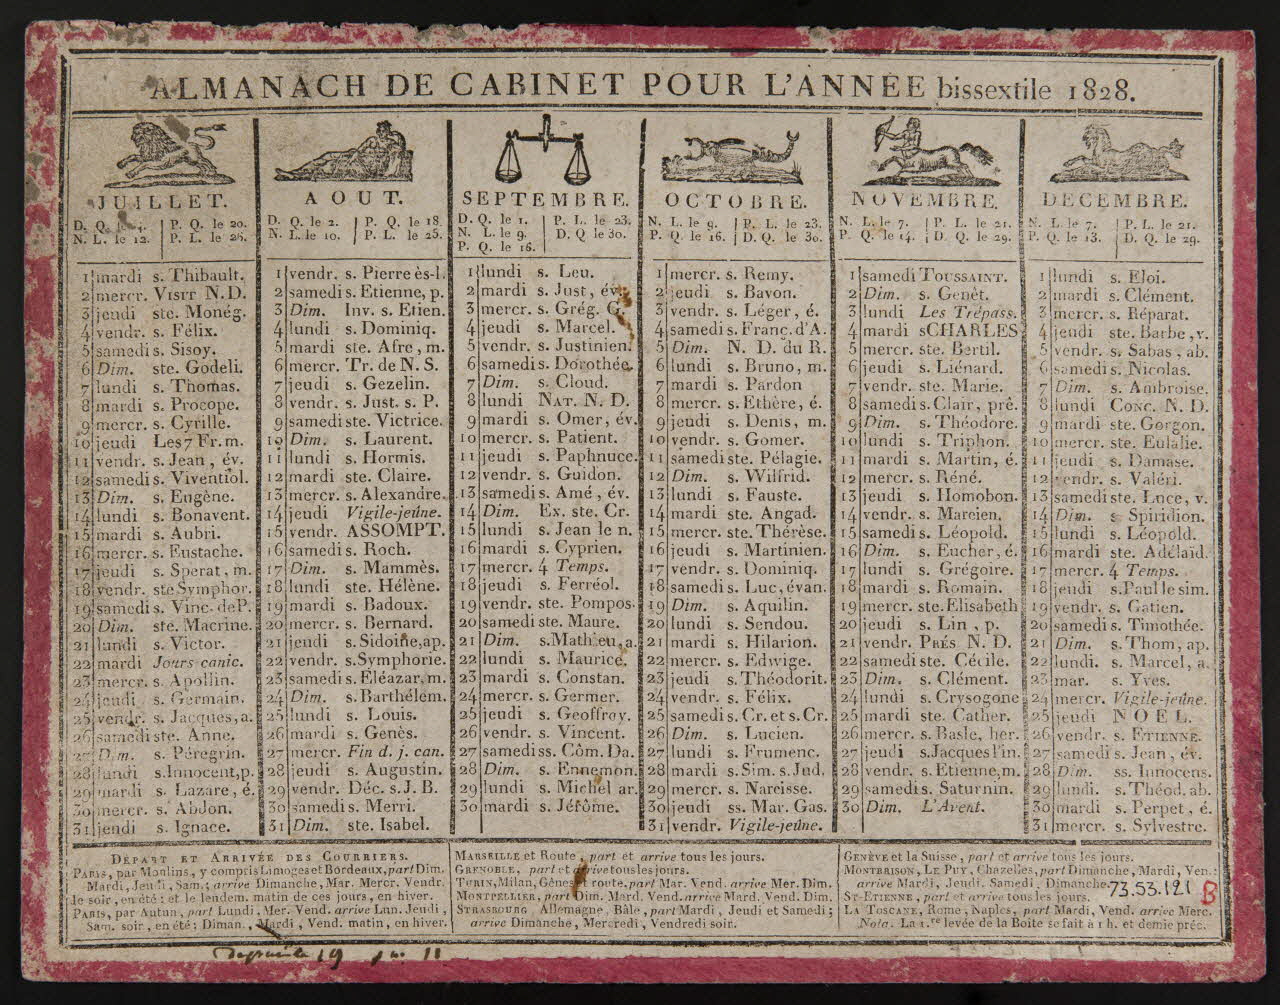 ALMANACH DE CABINET POUR L'ANNÉE bissextile 1828.
JUILLET.
D. Q. le 4. P. Q. le 20.
N. L. le 12. P. L. le 26.
1 mardi s. Thibault.
2 mercr. VISIT N. D.
3 jeudi ste. Monég.
4 vendr. s. Félix.
5 samedi s. Sisoy.
6 Dim. ste. Godeli.
7 lundi s. Thomas.
8 mardi s. Procope.
9 mercr. s. Cyrille.
10 jeudi Les 7 Fr. m.
11 vendr. s. Jean, év.
12 samedi s. Viventiol.
13 Dim. s. Eugène.
14 lundi s. Bonavent.
15 mardi s. Aubri.
16 mercr. s. Eustache.
17 jeudi s. Sperat, m.
18 vendr. ste Symphor.
19 samedi s. Vinc. de P.
20 Dim. ste. Macrine.
21 lundi s. Victor.
22 mardi Jours canic.
23 mercr. s. Apollin.
24 jeudi s. Germain.
25 vendr. s. Jacques, a.
26 samedi ste. Anne.
27 Dim. s. Péregrin.
28 lundi s. Innocent, p.
29 mardi s. Lazare, é.
30 mercr. s. Abdon.
31 jeudi s. Ignace.
AOUT.
D. Q. le 2. P. Q. le 18.
N. L. le 10. P. L. le 25.
1 vendr. s. Pierre ès-l.
2 samedi s. Etienne, p.
3 Dim. Inv. s. Etien.
4 lundi s. Dominiq.
5 mardi ste. Afre, m.
6 mercr. Tr. de N. S.
7 jeudi s. Gezelin.
8 vendr. s. Just. s. P.
9 samedi ste. Victrice.
10 Dim. s. Laurent.
11 lundi s. Hormis.
12 mardi ste. Claire.
13 mercr. s. Alexandre.
14 jeudi Vigile-jeûne.
15 vendr. ASSOMPT.
16 samedi s. Roch.
17 Dim. s. Mammès.
18 lundi ste. Hélène.
19 mardi s. Badoux.
20 mercr. s. Bernard.
21 jeudi s. Sidoine, ap.
22 vendr. s. Symphorie.
23 samedi s. Eléazar, m.
24 Dim. s. Barthélem.
25 lundi s. Louis.
26 mardi s. Genès.
27 mercr. Fin d. j. can.
28 jeudi s. Augustin.
29 vendr. Déc. s. J. B.
30 samedi s. Merri.
31 Dim. ste. Isabel.
SEPTEMBRE.
D. Q. le 1. P. L. le 23.
N. L. le 9. D. Q le 30.
P. Q. le 16.
1 lundi s. Leu.
2 mardi s. Just, év.
3 mercr. s. Grég. G.
4 jeudi s. Marcel.
5 vendr. s. Justinien.
6 samedi s. Dorothée.
7 Dim. s. Cloud.
8 lundi NAT. N. D.
9 mardi s. Omer, év.
10 mercr. s. Patient.
11 jeudi s. Paphnuce.
12 vendr. s. Guidon.
13 samedi s. Amé, év.
14 Dim. Ex. ste. Cr.
15 lundi s. Jean le n.
16 mardi s. Cyprien.
17 mercr. 4 Temps.
18 jeudi s. Ferréol.
19 vendr. ste. Pompos.
20 samedi ste. Maure.
21 Dim. s. Mathieu, a.
22 lundi s. Maurice.
23 mardi s. Constan.
24 mercr. s. Germer.
25 jeudi s. Geoffroy.
26 vendr. s. Vincent.
27 samedi ss. Côm. Da.
28 Dim. s. Ennemon.
29 lundi s. Michel ar.
30 mardi s. Jérôme.
OCTOBRE.
N. L. le 9. P. L. le 23.
P. Q. le 16. D. Q. le 30.
1 mercr. s. Remy.
2 jeudi s. Bavon.
3 vendr. s. Léger, é.
4 samedi s. Franç. d'A.
5 Dim. N. D. du R.
6 lundi s. Bruno, m.
7 mardi s. Pardon
8 mercr. s. Ethère, é.
9 jeudi s. Denis, m.
10 vendr. s. Gomer.
11 samedi ste. Pélagie.
12 Dim. s. Wilfrid.
13 lundi s. Fauste.
14 mardi ste. Angad.
15 mercr. ste. Thérèse.
16 jeudi s. Martinien.
17 vendr. s. Dominiq.
18 samedi s. Luc, évan.
19 Dim. s. Aquilin.
20 lundi s. Sendou.
21 mardi s. Hilarion.
22 mercr. s. Edwige.
23 jeudi s. Théodorit.
24 vendr. s. Félix.
25 samedi s. Cr. et s. Cr.
26 Dim. s. Lucien.
27 lundi s. Frumenc.
28 mardi s. Sim. s. Jud.
29 mercr. s. Narcisse.
30 jeudi ss. Mar. Gas.
31 vendr. Vigile-jeûne.
NOVEMBRE.
N. L. le 7. P. L. le 21.
P. Q. le 14. D. Q. le 29.
1 samedi TOUSSAINT.
2 Dim. s. Genêt.
3 lundi Les Trépass.
4 mardi s CHARLES
5 mercr. ste. Bertil.
6 jeudi s. Liénard.
7 vendr. ste. Marie.
8 samedi s. Clair, prê.
9 Dim. s. Théodore.
10 lundi s. Triphon.
11 mardi s. Martin, é.
12 mercr. s. Réné.
13 jeudi s. Homobon.
14 vendr. s. Marcien.
15 samedi s. Léopold.
16 Dim. s. Eucher, é.
17 lundi s. Grégoire.
18 mardi s. Romain.
19 mercr. ste. Elisabeth
20 jeudi s. Lin, p.
21 vendr. PRÉS N. D.
22 samedi ste. Cécile.
23 Dim. s. Clément.
24 lundi s. Crysogone
25 mardi ste. Cather.
26 mercr. s. Basle, her.
27 jeudi s. Jacques l'in.
28 vendr. s. Etienne, m.
29 samedi s. Saturnin.
30 Dim. L'Avent.
DECEMBRE.
N. L. le 7. P. L. le 21.
P. Q. le 13. D. Q. le 29.
1 lundi s. Eloi.
2 mardi s. Clément.
3 mercr. s. Réparat.
4 jeudi ste. Barbe, v.
5 vendr. s. Sabas, ab.
6 samedi s. Nicolas.
7 Dim. s. Ambroise.
8 lundi CONC. N. D.
9 mardi ste. Gorgon.
10 mercr. ste. Eulalie.
11 jeudi s. Damase.
12 vendr. s. Valéri.
13 samedi ste. Luce, v.
14 Dim. s Spiridion.
15 lundi s. Léopold.
16 mardi ste. Adélaïd.
17 mercr. 4 Temps.
18 jeudi s. Paul le sim.
19 vendr. s. Gatien.
20 samedi s. Timothée.
21 Dim. s. Thom, ap.
22 lundi. s. Marcel, a.
23 mar. s. Yves.
24 mercr. Vigile-jeûne.
25 jeudi NOEL.
26 vendr. s. ETIENNE.
27 samedi s. Jean, év.
28 Dim. ss. Innocens.
29 lundi. s. Théod. ab.
30 mardi s. Perpet, é.
31 mercr. s. Sylvestre.
DÉPART ET ARRIVÉE DES COURRIERS.
PARIS, par Moulins, y compris Limoges et Bordeaux, part Dim.
Mardi, Jeudi, Sam.; arrive Dimanche, Mar. Mercr. Vendr.
le soir, en été: et le lendem. matin de ces jours, en hiver.
PARIS, par Autun, part Lundi, Mer. Vend. arrive Lun. Jeudi,
Sam. soir, en été: Diman., Mardi, Vend. matin, en hiver.
MARSEILLE et Route, part et arrive tous les jours.
GRENOBLE, part et arrive tous les jours.
TURIN, Milan, Gênes et route, part Mar. Vend. arrive Mer. Dim.
MONTPELLIER, part Dim. Mard. Vend. arrive Mard. Vend. Dim.
STRASBOURG, Allemagne, Bâle, part Mardi, Jeudi et Samedi;
arrive Dimanche, Mercredi, Vendredi soir.
GENÈVE et la Suisse, part et arrive tous les jours.
MONTBRISON, LE PUY, Chazelles, part Dimanche, Mardi, Ven.:
arrive Mardi, Jeudi. Samedi, Dimanche.
ST-ETIENNE, part et arrive tous les jours.
LA TOSCANE, Rome, Naples, part Mardi, Vend. arrive Merc.
Nota. La 1.re levée de la Boite se fait à 1 h. et demie préc.
73.53.121 B